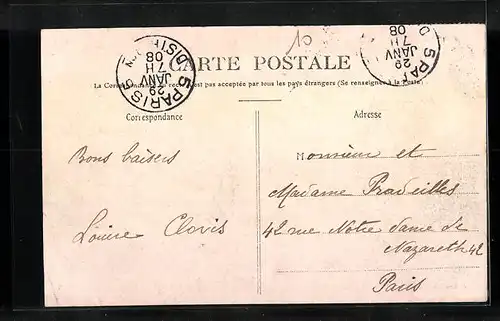 10
CARTE POSTALE
La Correspondance au recto n'est pas acceptée par tous les pays étrangers (Se renseigner à la Poste)
PARIS 5
7 H
29
JANV
08
5 PA
7 H
29
JANV
08
Correspondance
Adresse
Bons baisers
Louise Clovis
Monsieur et
Madame Pradeilles
42 rue Notre dame de
Nazareth 42
Paris